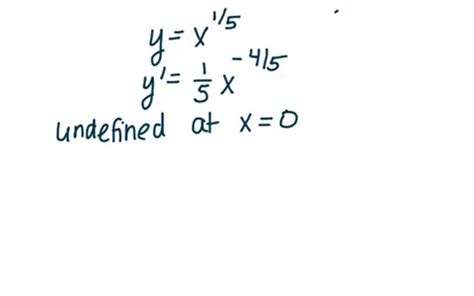 y = x^{1/5}
y' = \frac{1}{5} x^{-4/5}
undefined at x = 0